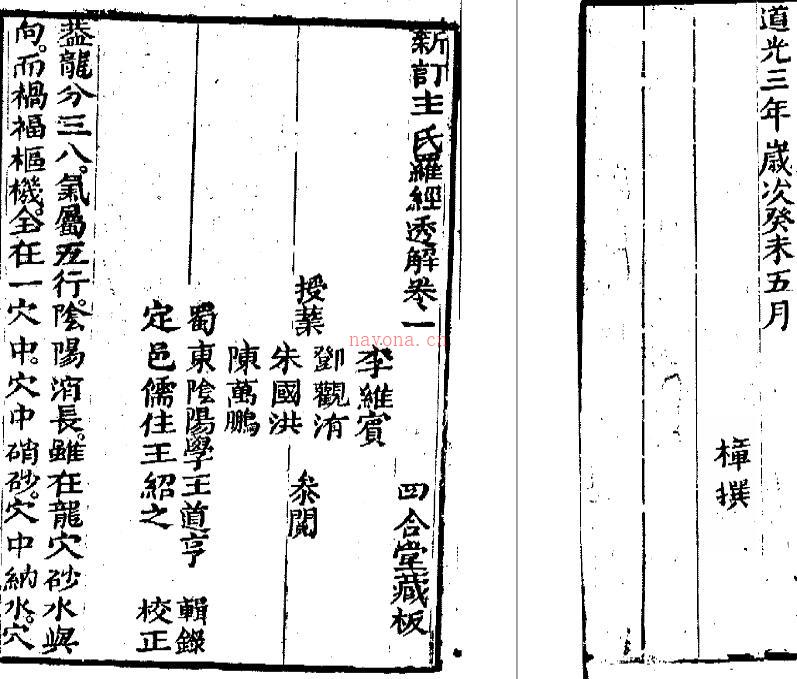 道光三年歲次癸未五月
樟撰
新訂王氏羅經透解卷一
四合堂藏板
授業
李維賓
鄧觀洧
朱國洪
陳萬鵬
叅閱
蜀東陰陽學王道亨 輯錄
定邑儒住王紹之 校正
葢龍分三八。氣屬五行。陰陽消長。雖在龍穴砂水與
向。而禍福樞機。全在一穴中。穴中硝砂。穴中納水。穴
nayona.cn